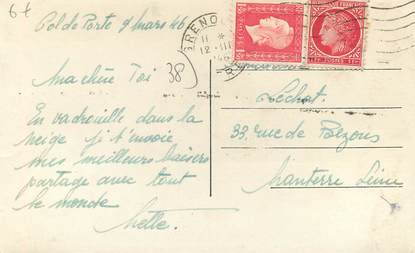 6f
Col de Porte 9 mars 46
38
Ma chère Toi
En vadrouille dans la
neige je t'envoie
mes meilleurs baisers
partage avec tout
le monde
GRENOBLE
11 *
12 - III
46
FRANCE
POSTES
Lechat
33 rue de Bezons
Nanterre Seine